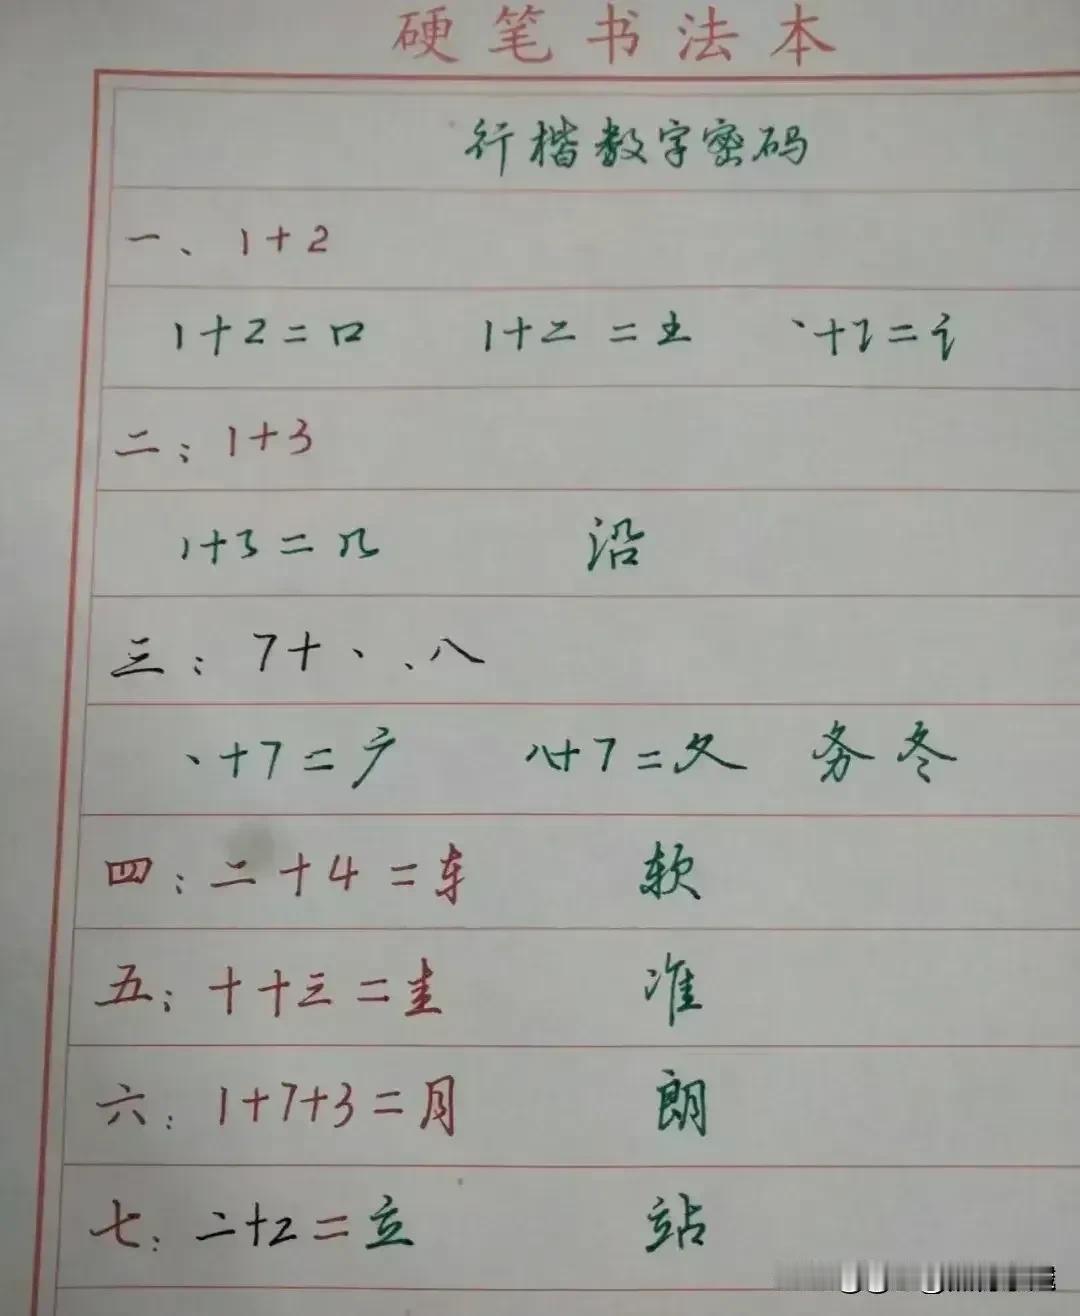 硬笔书法本
行楷数字密码
一、1+2
1+2=口 1+二=土 丶+乙=讠
二；1+3
1+3=几 沿
三：7+丶、八
丶+7=疒 八+7=夂 务冬
四：二+4=车 软
五：十十三=圭 准
六：1+7+3=月 朗
七：二+2=立 站